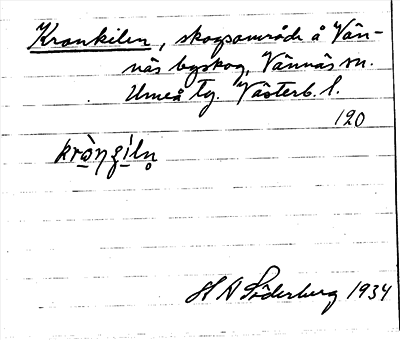 Krankilen, skogsområde å Vän-
näs byskog, Vännäs sn.
Umeå tg. Västerb. l.
120
kràŋʒiln̥
H A Söderberg 1934